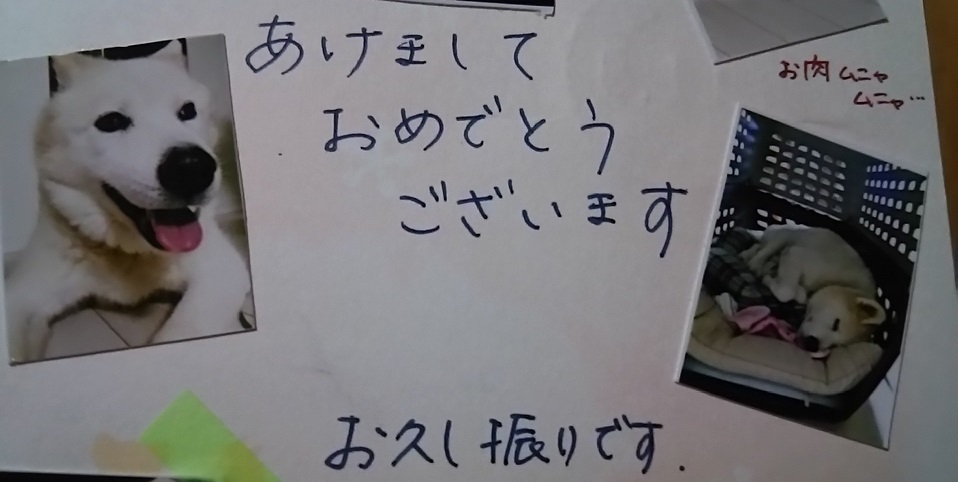 あけまして
おめでとう
ございます
お肉ムニャ
ムニャ…
お久し振りです.